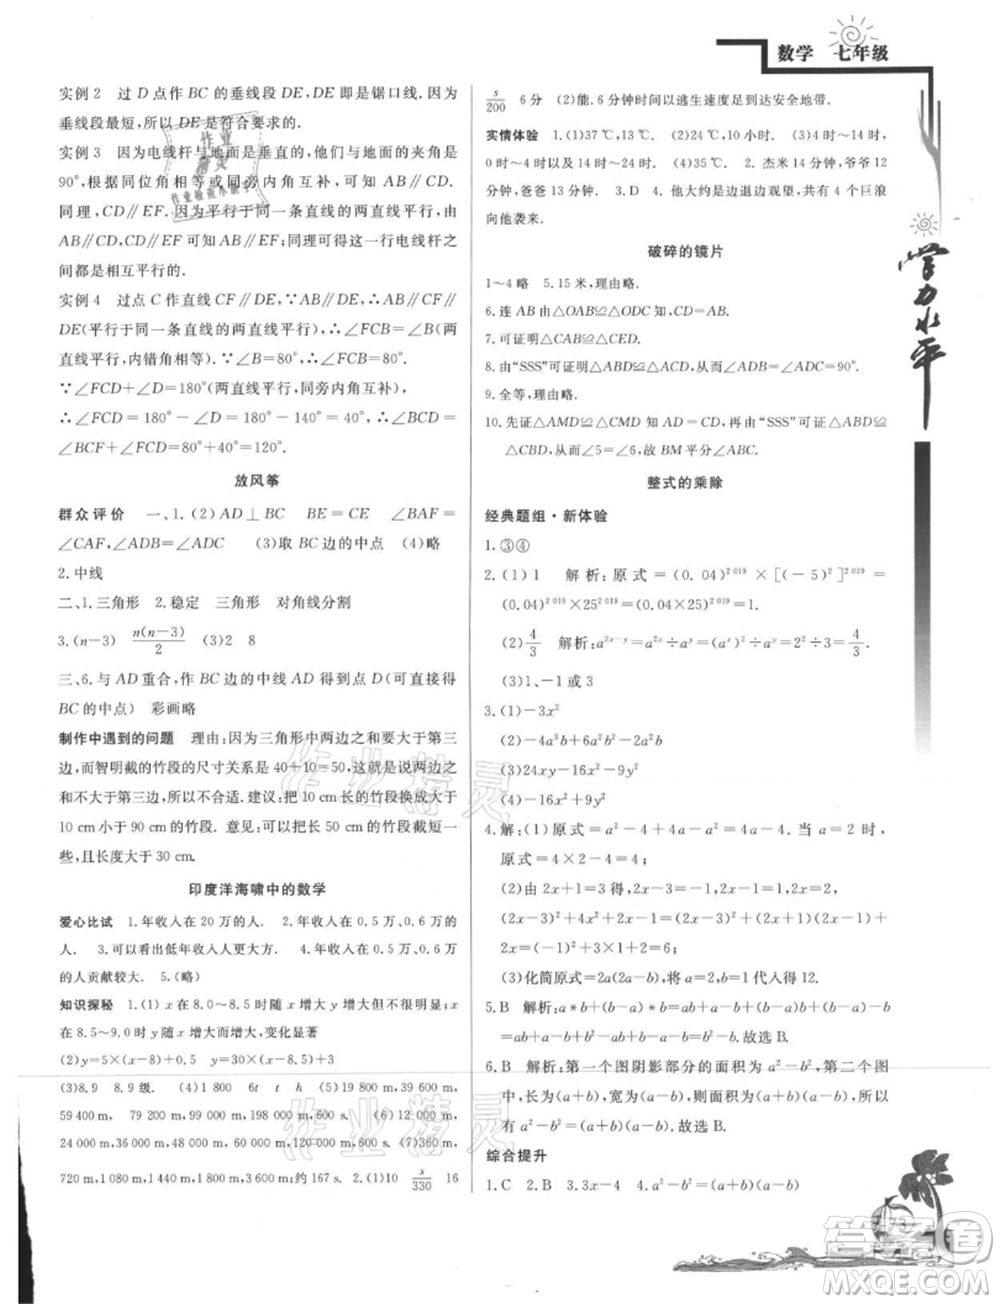 数学 七年级
实例 2 过 D 点作 BC 的垂线段 DE,DE 即是锯口线. 因
垂线段最短,所以 DE 是符合要求的.
实例 3 因为电线杆与地面是垂直的,他们与地面的夹角是
90°,根据同位角相等或同旁内角互补,可知 AB∥CD.
同理,CD∥EF. 因为平行于同一条直线的两条直线平行,由
AB∥CD,CD∥EF 可知 AB∥EF. 同理可知这一行电线杆之
间都是相互平行的.
实例 4 过点 C 作直线 CF∥DE,∵AB∥DE,∴CF∥AB∥
DE(平行于同一条直线的两直线平行). ∴∠FCB=∠B(两
直线平行,内错角相等). ∵∠B=80°,∴∠FCB=80°.
∵∠FCD+∠D=180°(两直线平行,同旁内角互补),
∴∠FCD=180°-∠D=180°-140°=40°,∴∠BCD=
∠BCF+∠FCD=80°+40°=120°.
放风筝
群众评价 一、1.(2)AD⊥BC BE=CE ∠BAF=
∠CAF,∠ADB=∠ADC (3)取 BC 边的中点 (4)略
2. 中线
二、1. 三角形 2. 稳定 三角形 对角线分割
3.(n-3) n(n-3)/2 (3)2 8
三、6. 与 AD 重合,作 BC 边的中线 AD 得到点 D(可折叠使得
BC 的中点) 彩画略
制作中遇到的问题 理由:因为三角形中两边之和要大于第三
边,而智明截的竹段的尺寸关系是 40+10=50,这就是两边之
和不大于第三边,所以不行. 建议:把 10 cm 长的竹段换成大于
10 cm 小于 90 cm 的竹段. 意见:可以将长 50 cm 的竹段截短一
些,且长度大于 30 cm.
印度洋海啸中的数学
爱心比试 1. 年收入在 20 万的人. 2. 年收入在 0.5 万、0.6 万的
人. 3. 可以看出低年收入人更大方. 4. 年收入在 0.5 万、0.6 万的
人贡献较大. 5.(略)
知识探秘 1.(1) x 在 8.0~8.5 时随 x 的增大,y 增大的较少;而
在 8.5~9.0 时 y 随 x 增大而增大,变化显著
(2)y=5×(x-8)+0.5 y=30×(x-8.5)+3
(3)8.9 8.9 级. (4)1 800 6t t h (5)19 800 m,39 600 m,
59 400 m, 79 200 m, 99 000 m, 198 000 m, 600 s. (6)12 000 m,
24 000 m,36 000 m,48 000 m,60 000 m,120 000 m. (7)360 m,
720 m,1 080 m,1 440 m,1 800 m,3 600 m;约 167 s. 2.(1)① s/330 16
s/200 6 分 (2)能. 6 分钟时间以逃生速度足到达安全地带.
实情体验 1.(1)37 ℃,13 ℃. (2)27 ℃,10 小时. (3)4 时~14 时,
0 时~4 时 (4)25 ℃. 2. 杰米 3 分钟,妈妈 14 分钟,爷爷 14 分
钟,爸爸 13 分钟. 3. D 4. 他大约是边退边观望,共有 4 个巨浪
向他袭来.
学力水平
破碎的镜片
1~4 略 5. 15 米,理由略.
6. 连 AB 由△OAB≌△ODC 知:CD=AB.
7. 可证明△CAB≌△CED.
8. 由“SSS”可证明△ABD≌△ACD,从而∠ADB=∠ADC=90°.
9. 全等,理由略.
10. 先证△AMD≌△CMD 知 AD=CD,再由“SSS”可证△ABD≌
△CBD,从而∠5=∠6,故 BM 平分∠ABC.
整式的乘除
经典题组·新体验
1. ③④
2. (1) 1 解析:原式=(0.04)²⁰¹⁹×[(-5)²⁰¹⁹]²=
(0.04)²⁰¹⁹×25²⁰¹⁹=(0.04×25)²⁰¹⁹=1²⁰¹⁹=1.
(2) 4/3 解析:a²ˣ⁻ʸ=a²ˣ÷aʸ=(aˣ)²÷aʸ=2²÷3=4/3.
(3)1、-1 或 3
3. (1)-3x²
(2)-4a³b+10a²b²-2ab³
(3)24xy-16x²-9y²
(4)-16x²+9y²
4. 解:(1) 原式=a²-4+4a-a²=4a-4,当 a=2½ 时,
原式=4×2½-4=6.
(2)由 2x-3=0,得 x=3/2,
(2x-3)²-(2x-3)(2x+3)=(2x-3)(2x-3-2x-3)=
(2x-3)×(-6)=0×(-6)=0.
(3)化简原式=2a(2a-b),将 a=2,b=1 代入得 12.
5. B 解析:a*b+(b-a)*b=ab+a-b+(b-a)×b+
(b-a)-b=ab+b²-ab-b=b²-b. 故选 B.
6. B 解析:第一个图阴影部分的面积为 a²-b²,第二个图
是长方形,长为(a+b),宽为(a-b),则面积为(a+b)
(a-b),所以 a²-b²=(a+b)(a-b). 故选 B.
综合提升
1. C 2. B 3. 3x-4 4. a²-b²=(a+b)(a-b)
作业精灵
作业精灵
答案圈
MXQE.COM